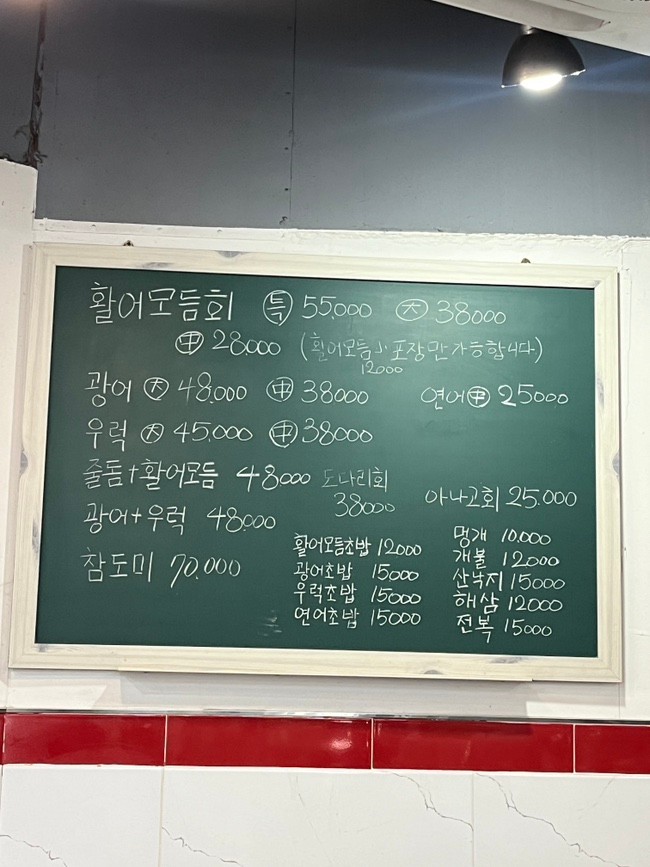 활어모듬회 ㊕ 55.000 ㊅ 38000
㊥ 28.000 (활어모듬小 포장만 가능합니다.)
12000
광어 ㊅ 48.000 ㊥ 38000
연어 ㊥ 25000
우럭 ㊅ 45.000 ㊥ 38000
줄돔+활어모듬 48000
도다리회
38000
아나고회 25.000
광어+우럭 48.000
참도미 70.000
활어모듬초밥 12000
광어초밥 15000
우럭초밥 15000
연어초밥 15000
멍개 10.000
개불 12000
산낙지 15000
해삼 12000
전복 15000